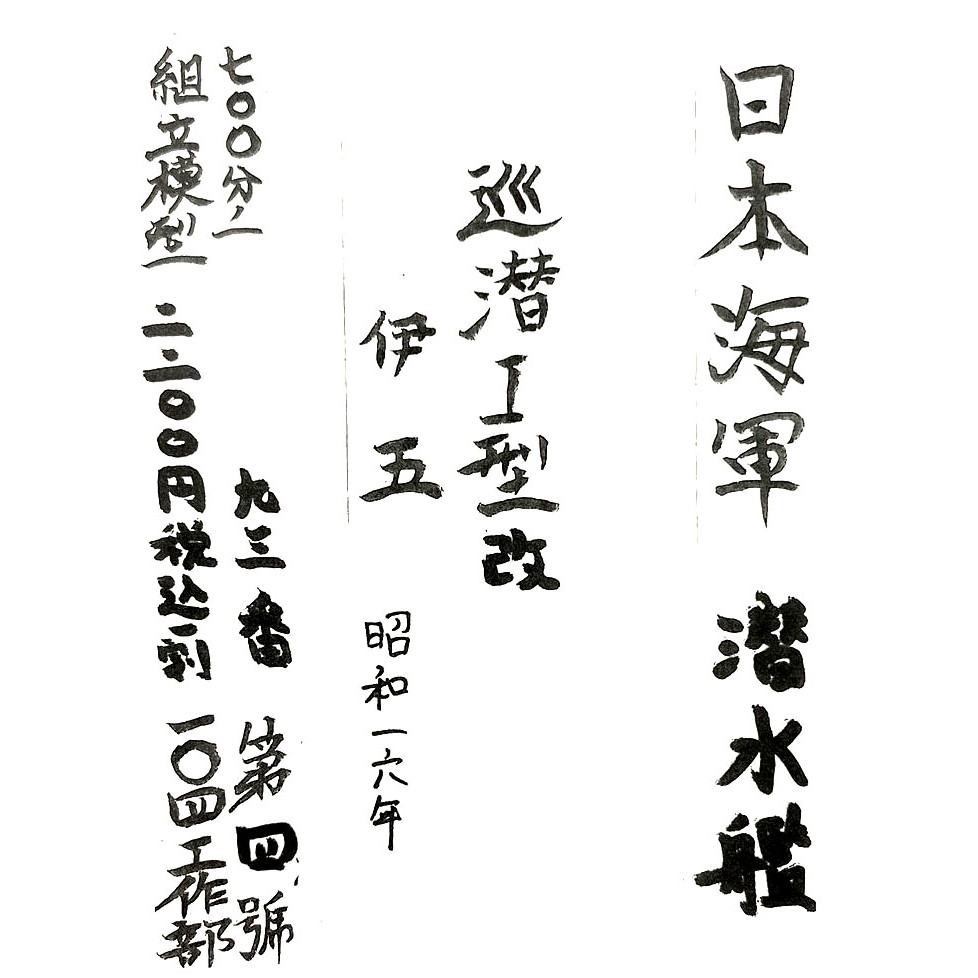 日本海軍 潜水艦
巡潜工型改
伊五 昭和一六年
七〇〇分ノ一
組立模型
九三番 第四號
二二〇〇円税込
一〇四工作部